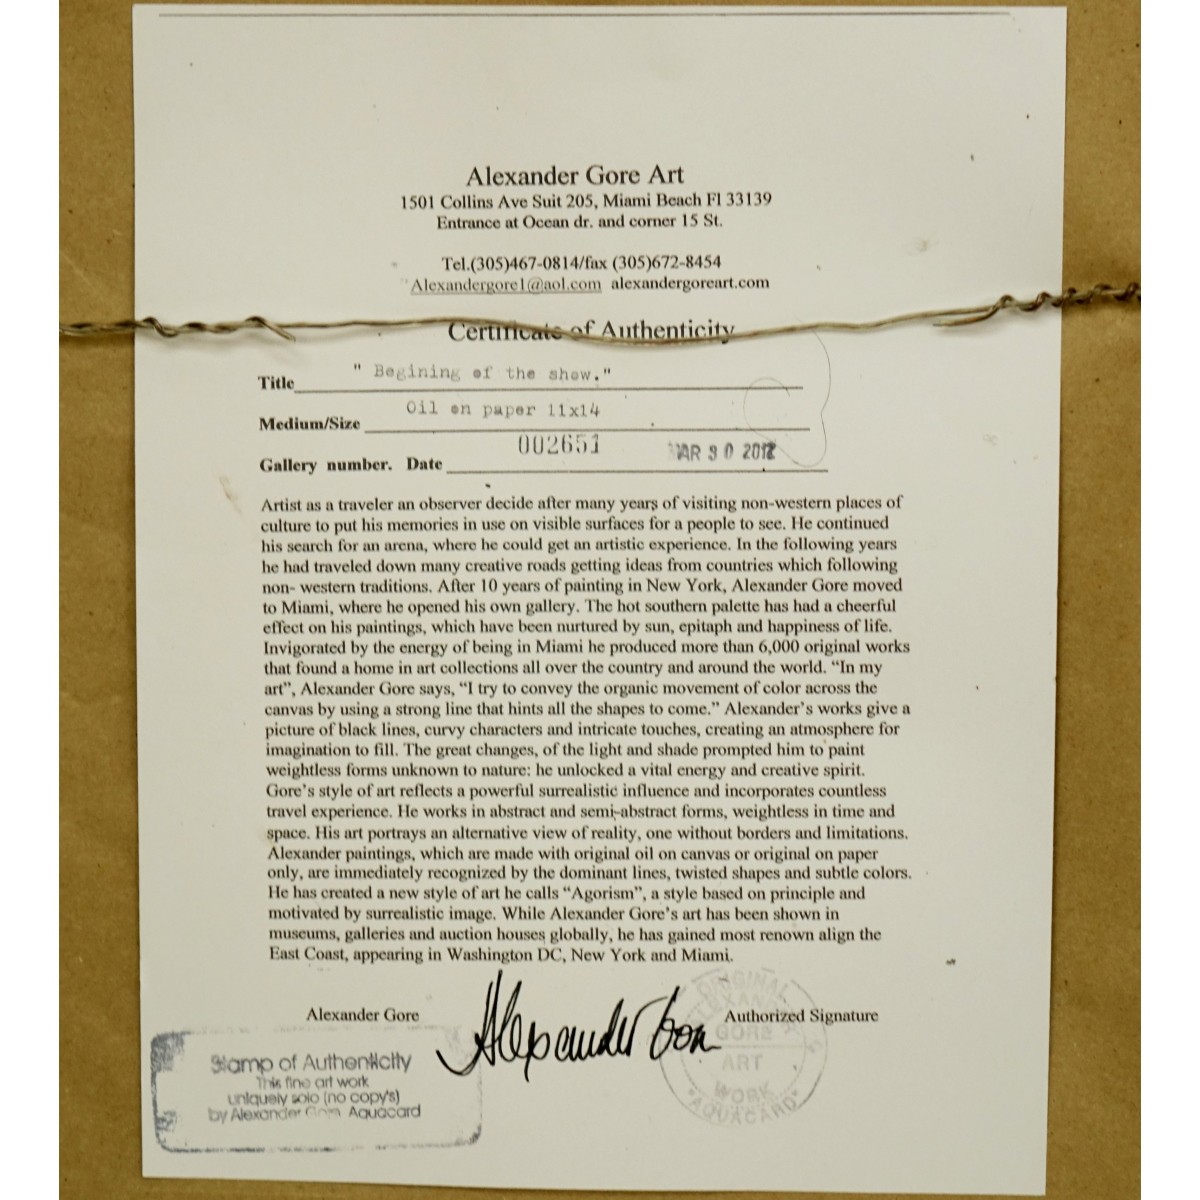 Alexander Gore Art
1501 Collins Ave Suit 205, Miami Beach Fl 33139
Entrance at Ocean dr. and corner 15 St.
Tel.(305)467-0814/fax (305)672-8454
Alexandergore1@aol.com alexandergoreart.com
Certificate of Authenticity
Title " Begining of the show."
Medium/Size Oil on paper 11x14
Gallery number. Date 002651 MAR 30 2012
Artist as a traveler an observer decide after many years of visiting non-western places of
culture to put his memories in use on visible surfaces for a people to see. He continued
his search for an arena, where he could get an artistic experience. In the following years
he had traveled down many creative roads getting ideas from countries which following
non- western traditions. After 10 years of painting in New York, Alexander Gore moved
to Miami, where he opened his own gallery. The hot southern palette has had a cheerful
effect on his paintings, which have been nurtured by sun, epitaph and happiness of life.
Invigorated by the energy of being in Miami he produced more than 6,000 original works
that found a home in art collections all over the country and around the world. “In my
art”, Alexander Gore says, “I try to convey the organic movement of color across the
canvas by using a strong line that hints all the shapes to come.” Alexander’s works give a
picture of black lines, curvy characters and intricate touches, creating an atmosphere for
imagination to fill. The great changes, of the light and shade prompted him to paint
weightless forms unknown to nature: he unlocked a vital energy and creative spirit.
Gore’s style of art reflects a powerful surrealistic influence and incorporates countless
travel experience. He works in abstract and semi-abstract forms, weightless in time and
space. His art portrays an alternative view of reality, one without borders and limitations.
Alexander paintings, which are made with original oil on canvas or original on paper
only, are immediately recognized by the dominant lines, twisted shapes and subtle colors.
He has created a new style of art he calls “Agorism”, a style based on principle and
motivated by surrealistic image. While Alexander Gore’s art has been shown in
museums, galleries and auction houses globally, he has gained most renown align the
East Coast, appearing in Washington DC, New York and Miami.
Alexander Gore Alexander Gore Authorized Signature
Stamp of Authenticity
This fine art work
uniquely solo (no copy's)
by Alexander Gore Aquacard
ORIGINAL
ALEXANDER
GORE
ART
WORK
AQUACARD